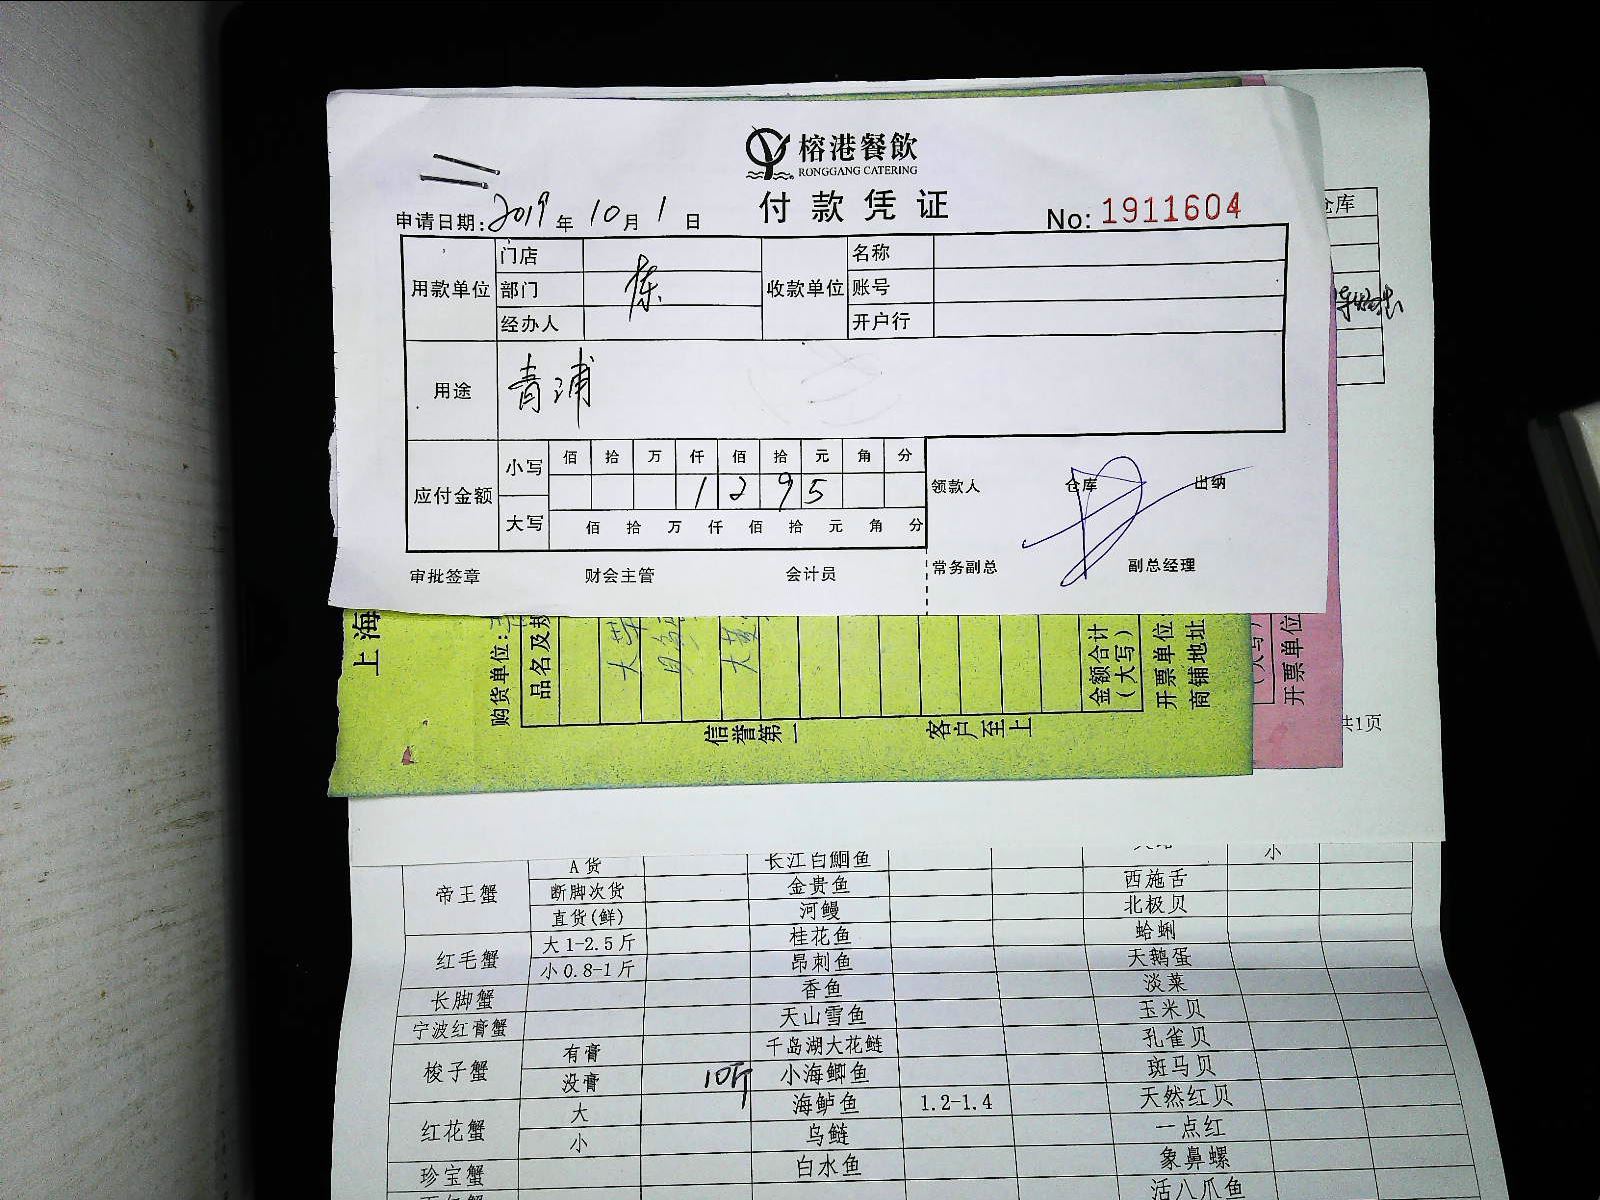 榕港餐飲
RONGGANG CATERING
付款凭证
申请日期:2019年10月1日 No:1911604
用款单位 门店 收款单位 名称
部门 账号
经办人 开户行
用途 青浦
应付金额 小写 佰 拾 万 仟 佰 拾 元 角 分
1 2 9 5
大写 佰 拾 万 仟 佰 拾 元 角 分
领款人 仓库 出纳
审批签章 财会主管 会计员 常务副总 副总经理
仓库
上海
购货单位:
品名及规
金额合计
(大写)
开票单位
商铺地址
信誉第一 客户至上
(大写)
开票单位
共1页
A货 长江白鮰鱼 小
帝王蟹 断脚次货 金贵鱼 西施舌
直货(鲜) 河鳗 北极贝
红毛蟹 大1-2.5斤 桂花鱼 蛤蜊
小0.8-1斤 昂刺鱼 天鹅蛋
长脚蟹 香鱼 淡菜
宁波红膏蟹 天山雪鱼 玉米贝
梭子蟹 有膏 千岛湖大花鲢 孔雀贝
没膏 10斤 小海鲫鱼 斑马贝
红花蟹 大 海鲈鱼 1.2-1.4 天然红贝
小 乌鲢 一点红
珍宝蟹 白水鱼 象鼻螺
活八爪鱼